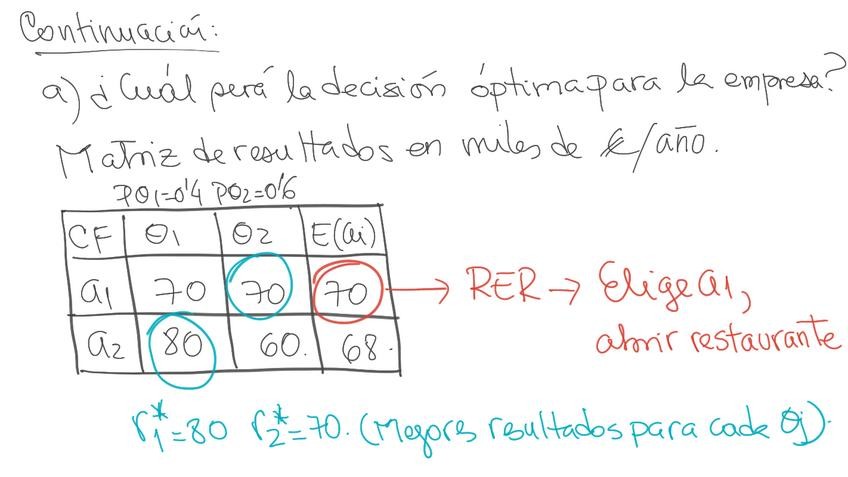 Continuación:
a) ¿Cuál será la decisión óptima para la empresa?
Matriz de resultados en miles de €/año.
PΘ1=0'4 PΘ2=0'6
CF Θ1 Θ2 E(ai)
a1 70 70 70 → RER → Elige a1,
abrir restaurante
a2 80 60. 68.
r1*=80 r2*=70. (Mejores resultados para cada Θj).